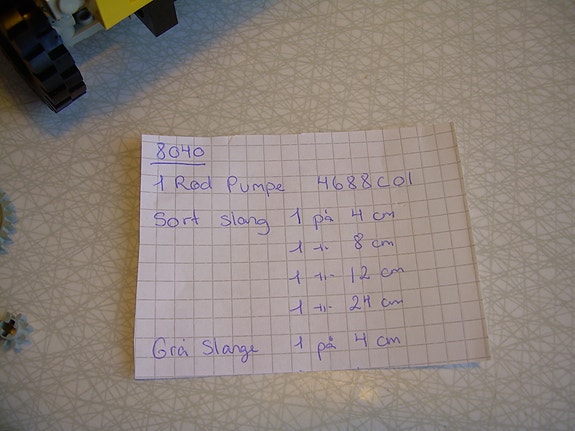 8040
1 Rød Pumpe 4688C01
Sort slang 1 på 4 cm
1 -"- 8 cm
1 -"- 12 cm
1 -"- 24 cm
Grå Slange 1 på 4 cm